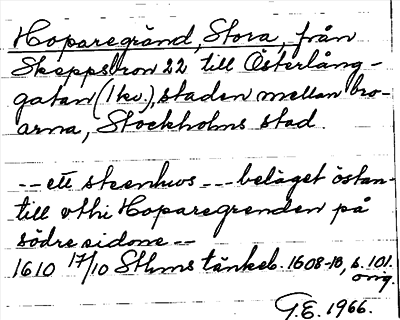 Hoparegränd, Stora, från
Skeppsbron 22 till Österlång-
gatan (1 kv.), staden mellan bro-
arna, Stockholms stad.
-- ett steenhus --- beläget östan-
till vthi Hoparegrenden på
södre sidone --
1610 17/10 Sthms tänkeb. 1608-10, s. 101.
orig.
G.E. 1966.